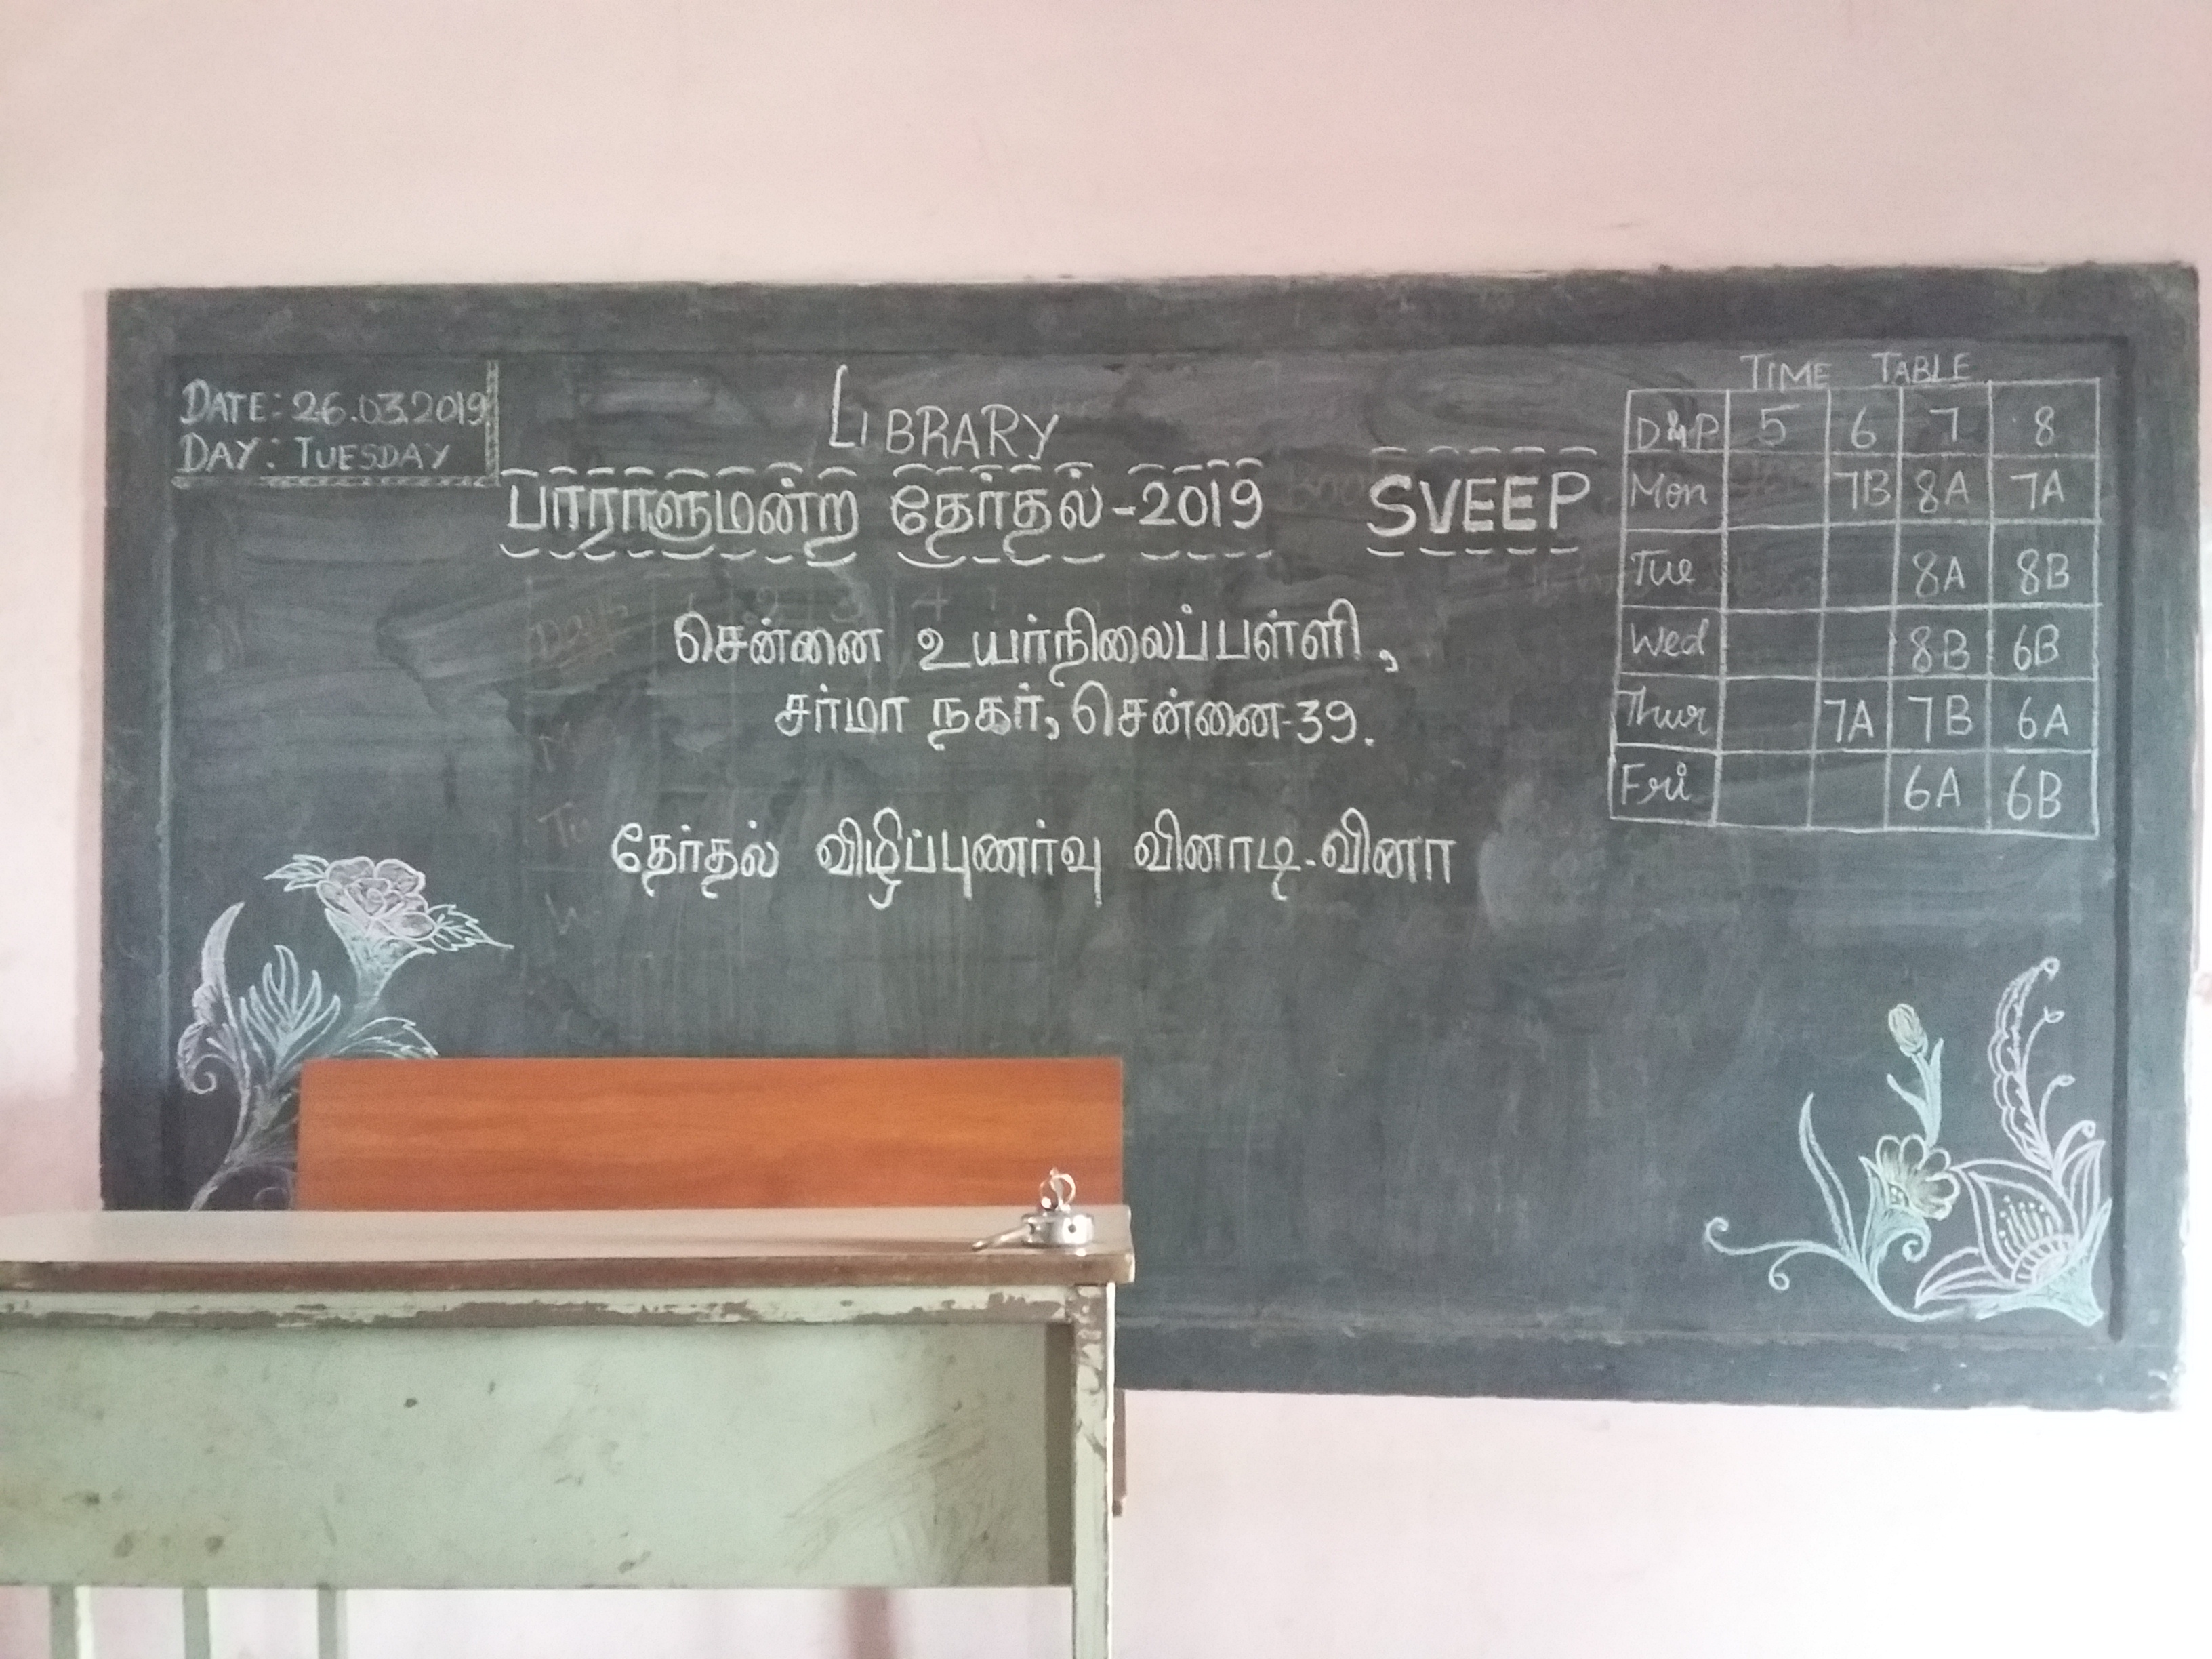 DATE: 26.03.2019
DAY: TUESDAY
LIBRARY
பாராளுமன்ற தேர்தல்-2019 SVEEP
சென்னை உயர்நிலைப்பள்ளி,
சர்மா நகர், சென்னை-39.
தேர்தல் விழிப்புணர்வு வினாடி-வினா
TIME TABLE
D&P 5 6 7 8
Mon 7B 8A 7A
Tue 8A 8B
Wed 8B 6B
Thur 7A 7B 6A
Fri 6A 6B